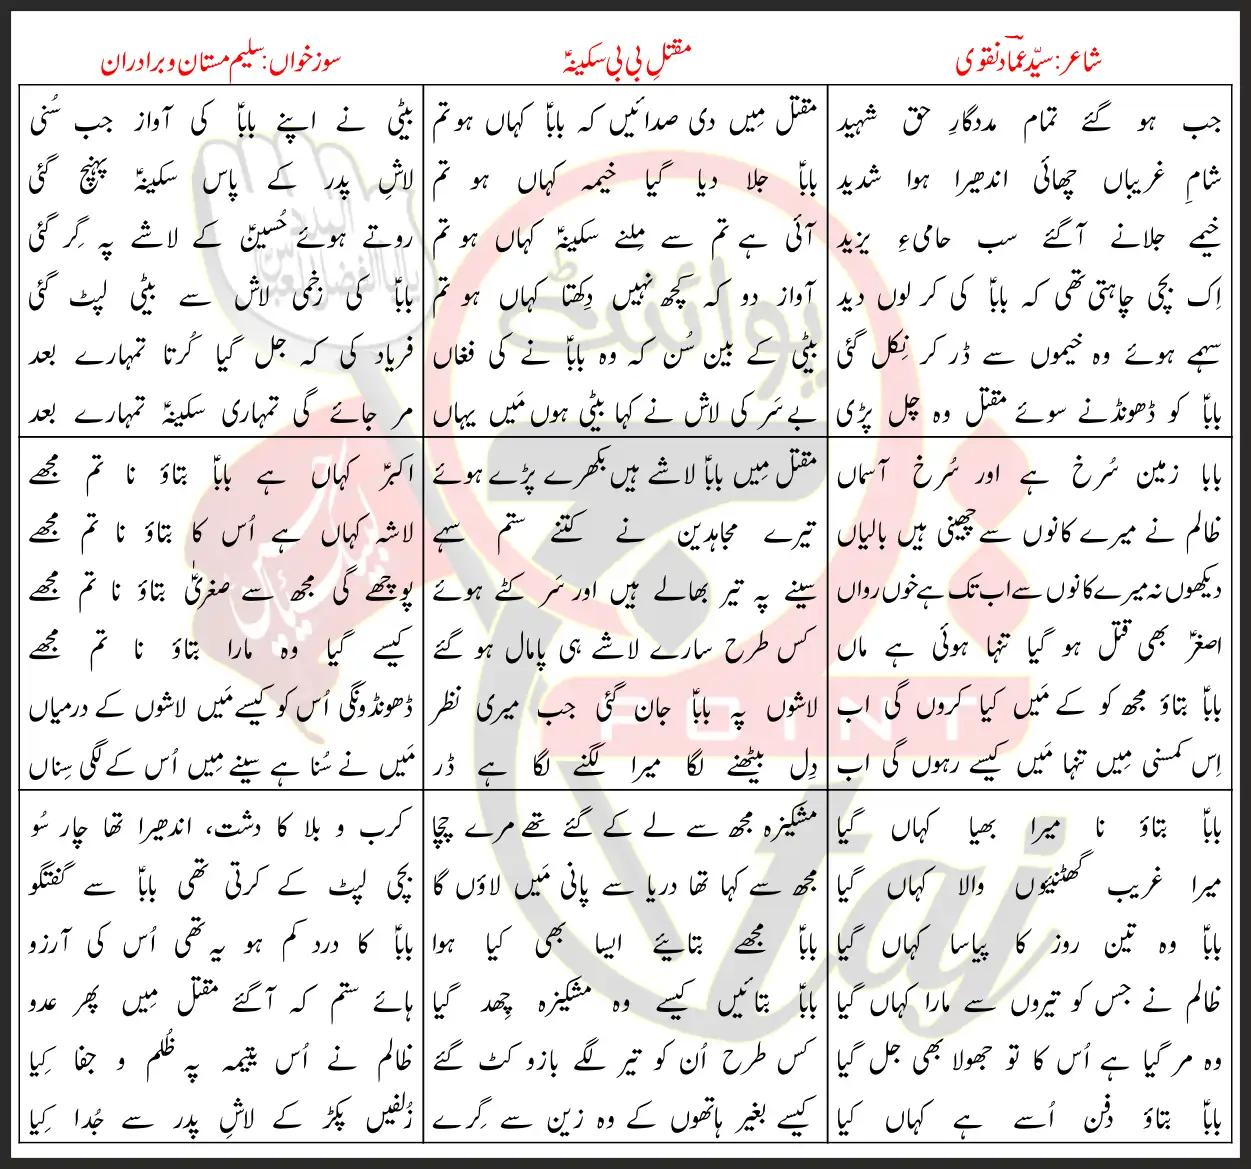 شاعر: سیّد عمّاد نقوی
مقتلِ بی بی سکینہؑ
سوز خواں: سلیم مستان و برادران
جب ہو گئے تمام مددگارِ حق شہید
شامِ غریباں چھائی اندھیرا ہوا شدید
خیمے جلانے آ گئے سب حامیءِ یزید
اِک بچی چاہتی تھی کہ باباؑ کی کر لوں دید
سہمے ہوئے وہ خیموں سے ڈر کر نِکل گئی
باباؑ کو ڈھونڈنے سوئے مقتل وہ چل پڑی
مقتل مِیں دی صدائیں کہ باباؑ کہاں ہو تم
باباؑ جلا دیا گیا خیمہ کہاں ہو تم
آئی ہے تم سے مِلنے سکینہؑ کہاں ہو تم
آواز دو کہ کچھ نہیں دِکھتا کہاں ہو تم
بیٹی کے بین سُن کہ وہ باباؑ نے کی فغاں
بے سَر کی لاش نے کہا بیٹی ہوں مَیں یہاں
بیٹی نے اپنے باباؑ کی آواز جب سُنی
لاشِ پدر کے پاس سکینہؑ پہنچ گئی
روتے ہوئے حُسینؑ کے لاشے پہ گِر گئی
باباؑ کی زخمی لاش سے بیٹی لپٹ گئی
فریاد کی کہ جل گیا کُرتا تمہارے بعد
مر جائے گی تمہاری سکینہؑ تمہارے بعد
بابا زمین سُرخ ہے اور سُرخ آسماں
ظالم نے میرے کانوں سے چھینی ہیں بالیاں
دیکھوں نہ میرے کانوں سے اب تک ہے خوں رواں
اصغرؑ بھی قتل ہو گیا تنہا ہوئی ہے ماں
باباؑ بتاؤ مجھ کو کے مَیں کیا کروں گی اب
اِس کمسنی مِیں تنہا مَیں کیسے رہوں گی اب
مقتل مِیں باباؑ لاشے ہیں بکھرے پڑے ہوئے
تیرے مجاہدین نے کتنے ستم سہے
سینے پہ تیر بھالے ہیں اور سَر کٹے ہوئے
کس طرح سارے لاشے ہی پامال ہو گئے
لاشوں پہ باباؑ جان گئی جب میری نظر
دِل بیٹھنے لگا میرا لگنے لگا ہے ڈر
اکبرؑ کہاں ہے باباؑ بتاؤ نا تم مجھے
لاشہ کہاں ہے اُس کا بتاؤ نا تم مجھے
پوچھے گی مجھ سے صغریٰؑ بتاؤ نا تم مجھے
کیسے گیا وہ مارا بتاؤ نا تم مجھے
ڈھونڈونگی اُس کو کیسے مَیں لاشوں کے درمیاں
مَیں نے سُنا ہے سینے مِیں اُس کے لگی سِناں
باباؑ بتاؤ نا میرا بھیا کہاں گیا
میرا غریب گھٹنیوں والا کہاں گیا
باباؑ وہ تین روز کا پیاسا کہاں گیا
ظالم نے جس کو تیروں سے مارا کہاں گیا
وہ مر گیا ہے اُس کا تو جھولا بھی جل گیا
باباؑ بتاؤ دفن اُسے ہے کہاں کیا
مشکیزہ مجھ سے لے کے گئے تھے مرے چچا
مجھ سے کہا تھا دریا سے پانی مَیں لاؤں گا
باباؑ مجھے بتایئے ایسا بھی کیا ہوا
باباؑ بتائیں کیسے وہ مشکیزہ چِھد گیا
کس طرح اُن کو تیر لگے بازو کٹ گئے
کیسے بغیر ہاتھوں کے وہ زین سے گِرے
کرب و بلا کا دشت، اندھیرا تھا چار سُو
بچی لپٹ کے کرتی تھی باباؑ سے گفتگو
باباؑ کا درد کم ہو یہ تھی اُس کی آرزو
ہائے ستم کہ آ گئے مقتل مِیں پھر عدو
ظالم نے اُس یتیمہ پہ ظُلم و جفا کِیا
زُلفیں پکڑ کے لاشِ پدر سے جُدا کِیا
پوائنٹ
POINT
taj